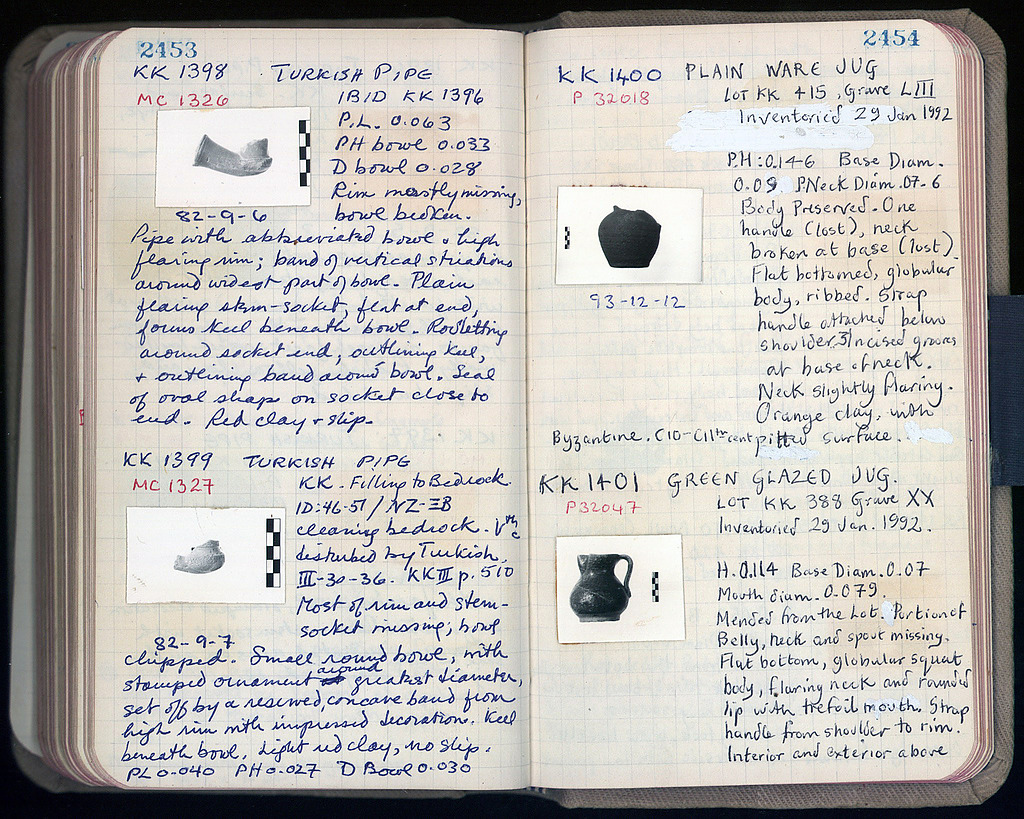 2453
KK 1398 TURKISH PIPE
MC 1326
IBID KK 1396
P.L. 0.063
PH bowl 0.033
D bowl 0.028
Rim mostly missing,
bowl broken.
82-9-6
Pipe with abbreviated bowl & high
flaring rim; band of vertical striations
around widest part of bowl. Plain
flaring stem-socket, flat at end,
forms keel beneath bowl. Rouletting
around socket end, outlining keel,
+ outlining band around bowl. Seal
of oval shape on socket close to
end. Red clay + slip.
KK 1399 TURKISH PIPE
MC 1327
KK. Filling to Bedrock.
ID:46-51 / NZ-ΞB
cleaning bedrock. Vth c
disturbed by Turkish.
III-30-36. KK III p. 510
Most of rim and stem-
socket missing; bowl
82-9-7
chipped. Small round bowl, with
stamped ornament around greatest diameter,
set off by a reserved, concave band from
high rim with impressed decoration. Keel
beneath bowl. Light red clay, no slip.
PL 0.040 PH 0.027 D Bowl 0.030
2454
KK 1400 PLAIN WARE JUG
P 32018
LOT KK 415, Grave LIII
Inventoried 29 Jan 1992
PH: 0.146 Base Diam.
0.09 PNeck Diam. 07-6
Body Preserved. One
handle (lost), neck
broken at base (lost).
Flat bottomed, globular
body, ribbed. Strap
handle attached below
shoulder. 3 Incised grooves
at base of neck.
Neck slightly flaring.
Orange clay, with
pitted surface.
93-12-12
Byzantine. C10-C11th cent
KK 1401 GREEN GLAZED JUG.
P 32047
LOT KK 388 Grave XX
Inventoried 29 Jan. 1992.
H. 0.114 Base Diam. 0.07
Mouth diam. 0.079.
Mended from the Lot. Portion of
Belly, neck and spout missing.
Flat bottom, globular squat
body, flaring neck and rounded
lip with trefoil mouth. Strap
handle from shoulder to rim.
Interior and exterior above